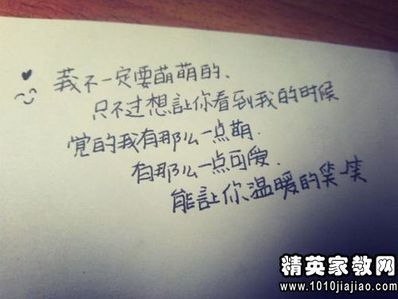 莪不一定要萌萌的、
只不过想讓你看到我的时候
觉的我有那么一点萌.
有那么一点可爱.
能讓你温暖的笑一笑
精英家教网
www.1010jiajiao.com